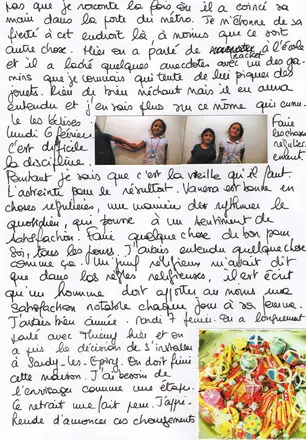 pas que je raconte la fois où il a coincé sa
main dans la porte du métro. Je m'étonne de sa
fierté à cet endroit là à moins que ce soit
autre chose. Hier on a parlé de racket à l'école
et il a lâché quelques anecdotes avec un des ga-
mins que je connais qui tente de lui piquer des
jouets. Rien de bien méchant mais il en aura
entendu et j'en sais plus sur ce môme qui
lundi 6 février.
c'est difficile
la discipline.
Faire
les choses
régulièr.
ement.
Pourtant je sais que c'est la vieille qu'il faut.
L'astreinte pour le résultat. Vanessa est bonne en
choses régulières, une manière de rythmer le
quotidien, qui pousse à un sentiment de
satisfaction. Faire quelque chose de bon pour
soi, tous les jours. J'avais entendu quelque chose
comme ça. Un juif religieux m'avait dit
que dans les règles religieuses, il est écrit
qu'un homme doit apporter au moins une
satisfaction notable chaque jour à sa femme.
J'avais bien aimé. mardi 7 février. On a longuement
parlé avec Thierry hier et on
a pris la décision de s'installer
à On doit finir
cette maison. J'ai besoin de
l'envisager comme une étape.
Ce retrait me fait peur. J'appré-
hende d'annoncer ces changements